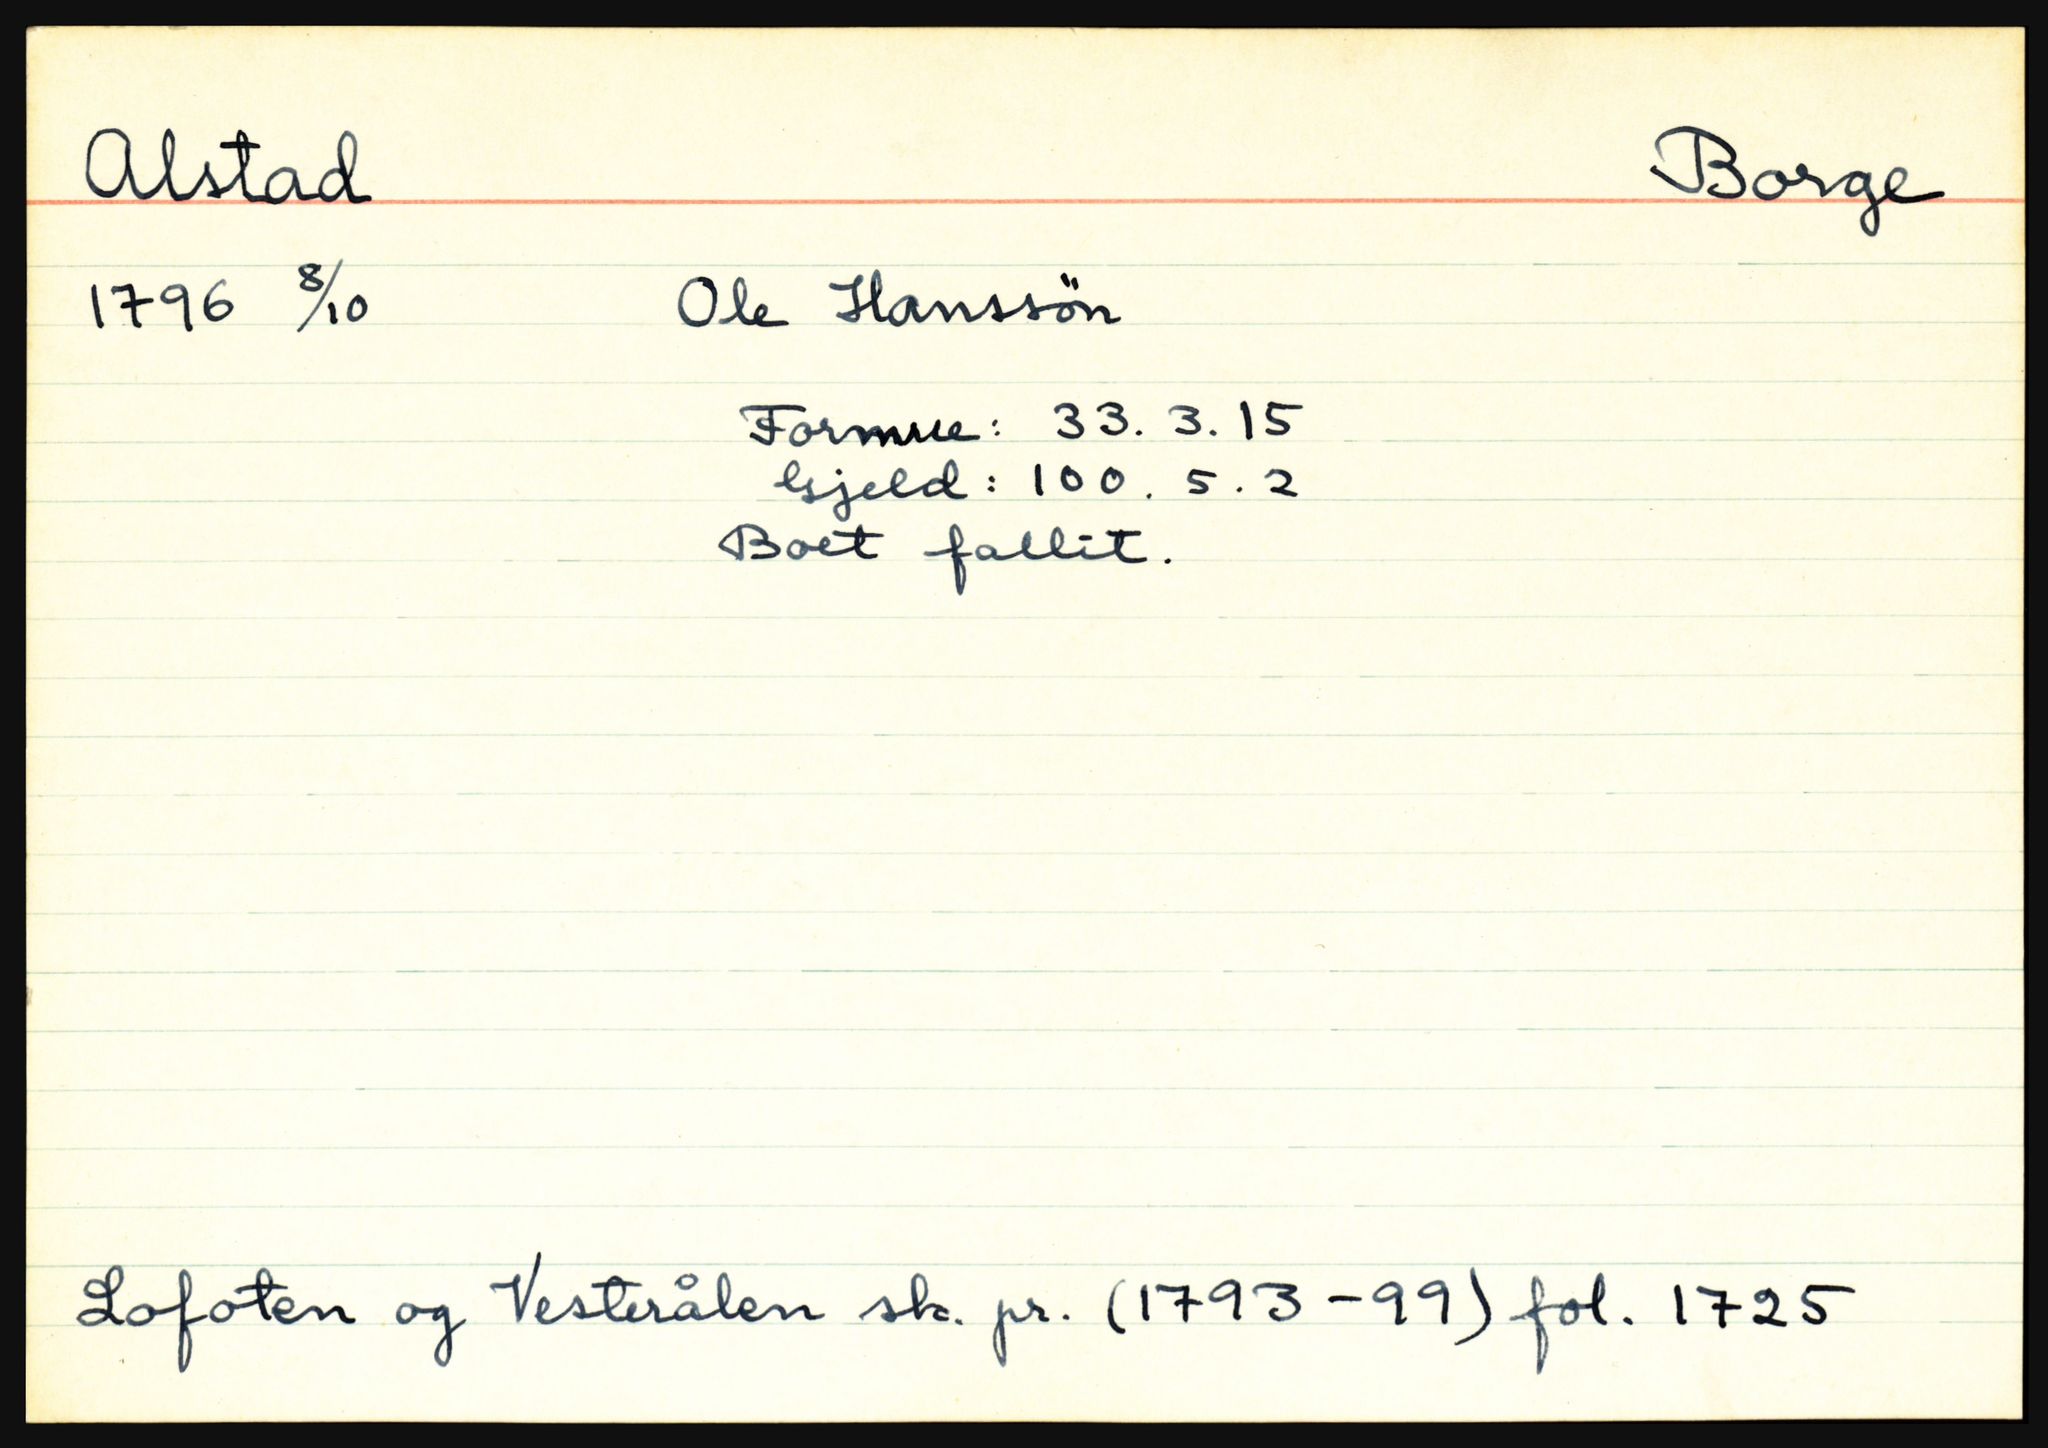 Alstad Borge
1796 8/10 Ole Hanssön
Formue: 33. 3. 15
Gjeld: 100. 5. 2
Boet fallit.
Lofoten og Vesterålen sk. pr. (1793-99) fol. 1725